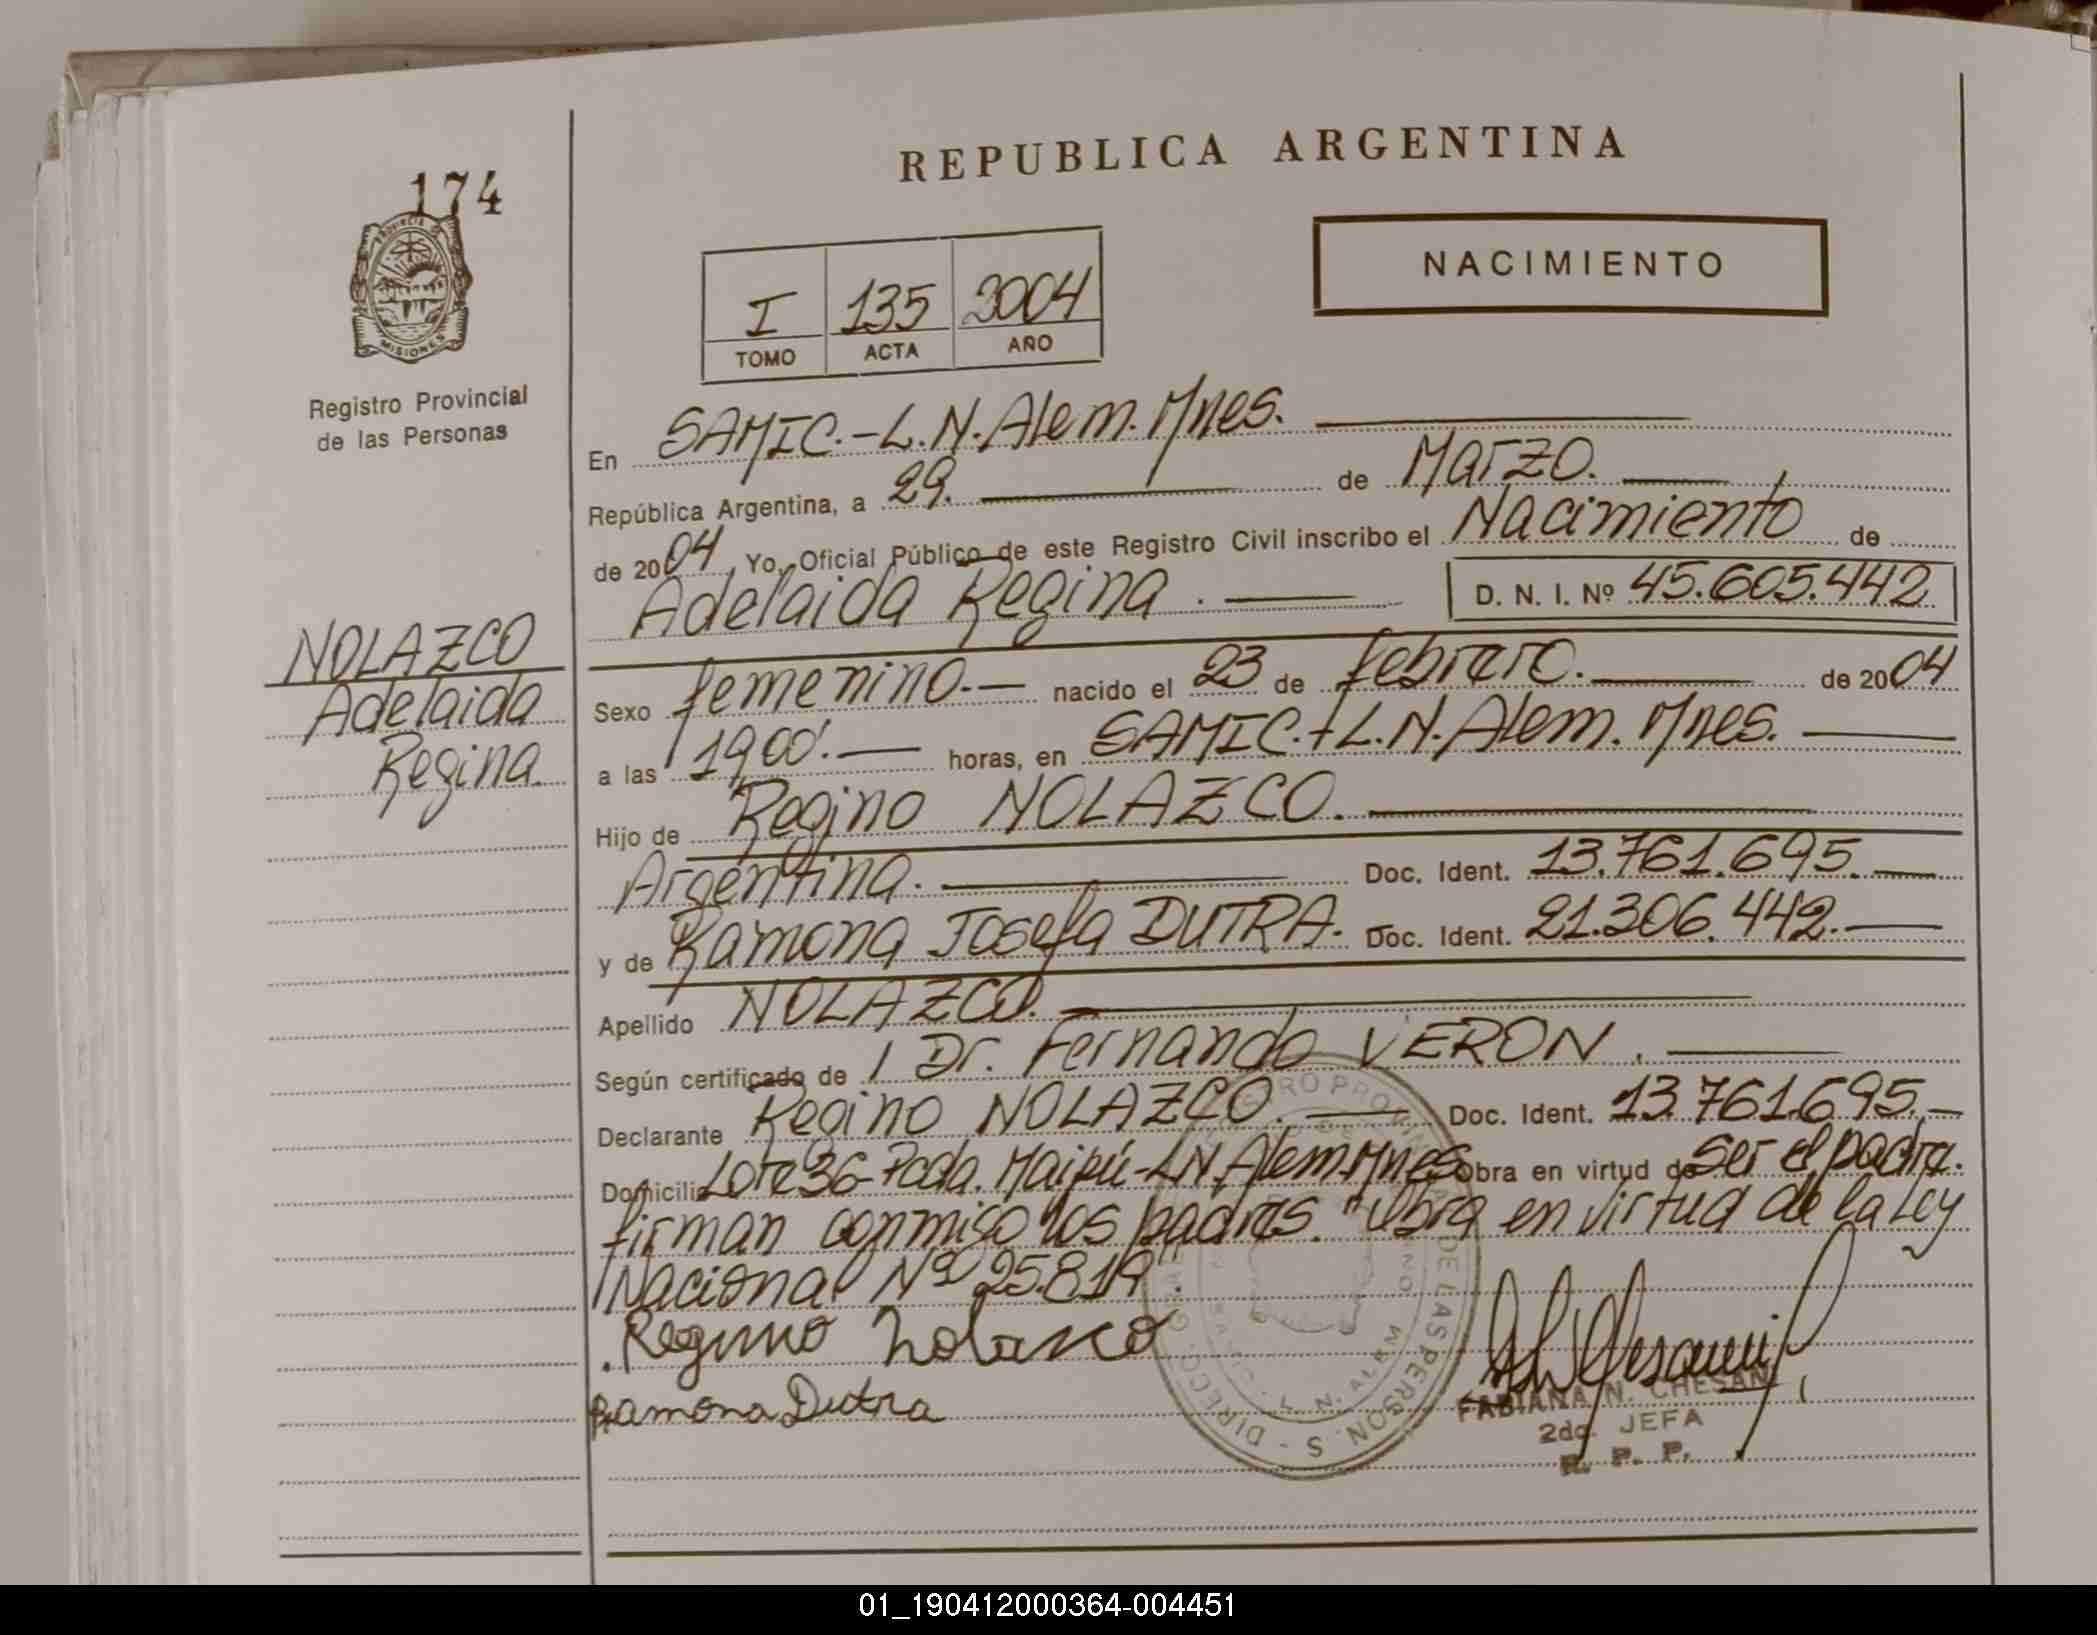 REPUBLICA ARGENTINA
174
PROVINCIA DE
MISIONES
Registro Provincial
de las Personas
NACIMIENTO
I 135 2004
TOMO ACTA AÑO
En SAMIC.-L.N.Alem.Mnes.
República Argentina, a 29. de Marzo.
de 2004, Yo, Oficial Público de este Registro Civil inscribo el Nacimiento de
Adelaida Regina. D. N. I. Nº 45.605.442
NOLAZCO
Adelaida
Regina.
Sexo femenino.- nacido el 23 de febrero. de 2004
a las 19,00'.- horas, en SAMIC.-L.N.Alem. Mnes.
Hijo de Regino NOLAZCO.
Argentina. Doc. Ident. 13.761.695.
y de Ramona Josefa DUTRA. Doc. Ident. 21.306.442.
Apellido NOLAZCO.
Según certificado de Dr. Fernando VERON.
Declarante Regino NOLAZCO. Doc. Ident. 13.761.695.
Domicilio Lote 36-Pcda. Maipú-L.N.Alem-Mnes Obra en virtud de ser el padre.
firman conmigo los padres. "Obra en virtud de la Ley
Nacional Nº 25.819".
Regino Nolasco
Ramona Dutra
FABIANA N. CHESANI
2da. JEFA
R. P. P.
01_190412000364-004451